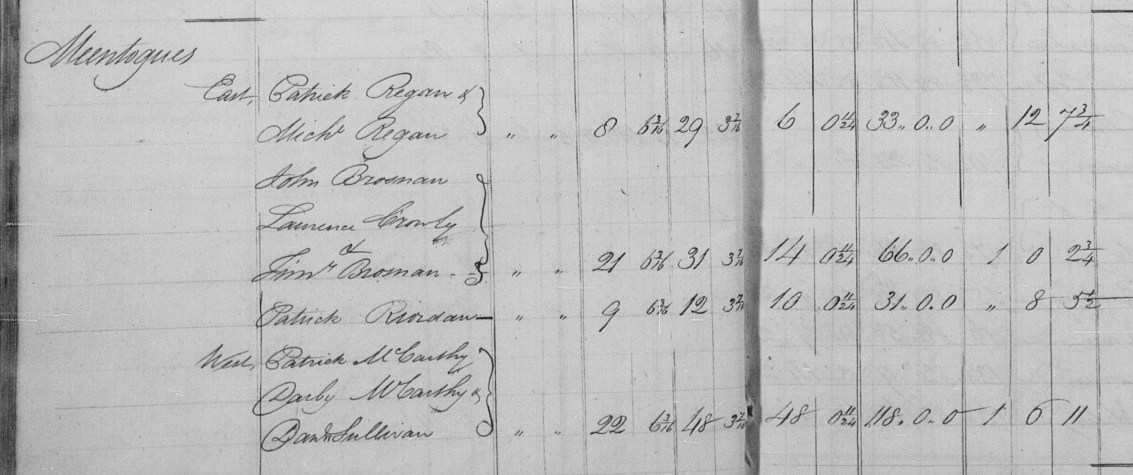 Meentogues
East, Patrick Regan &
Mich^l Regan " " 8 6 3/16 29 3 7/16 6 0 11/24 33.. 0.. 0 " 12 7 3/4
John Brosnan
Laurence Crowly
&
Tim^y Brosnan " " 21 6 3/16 31 3 7/16 14 0 11/24 66.. 0.. 0 1 0 2 3/4
Patrick Riordan — " " 9 6 3/16 12 3 7/16 10 0 11/24 31.. 0.. 0 " 8 5 1/2
West, Patrick McCarthy
Darby McCarthy &
Dan^l Sullivan " " 22 6 3/16 48 3 7/16 48 0 11/24 118.. 0.. 0 1 6 11